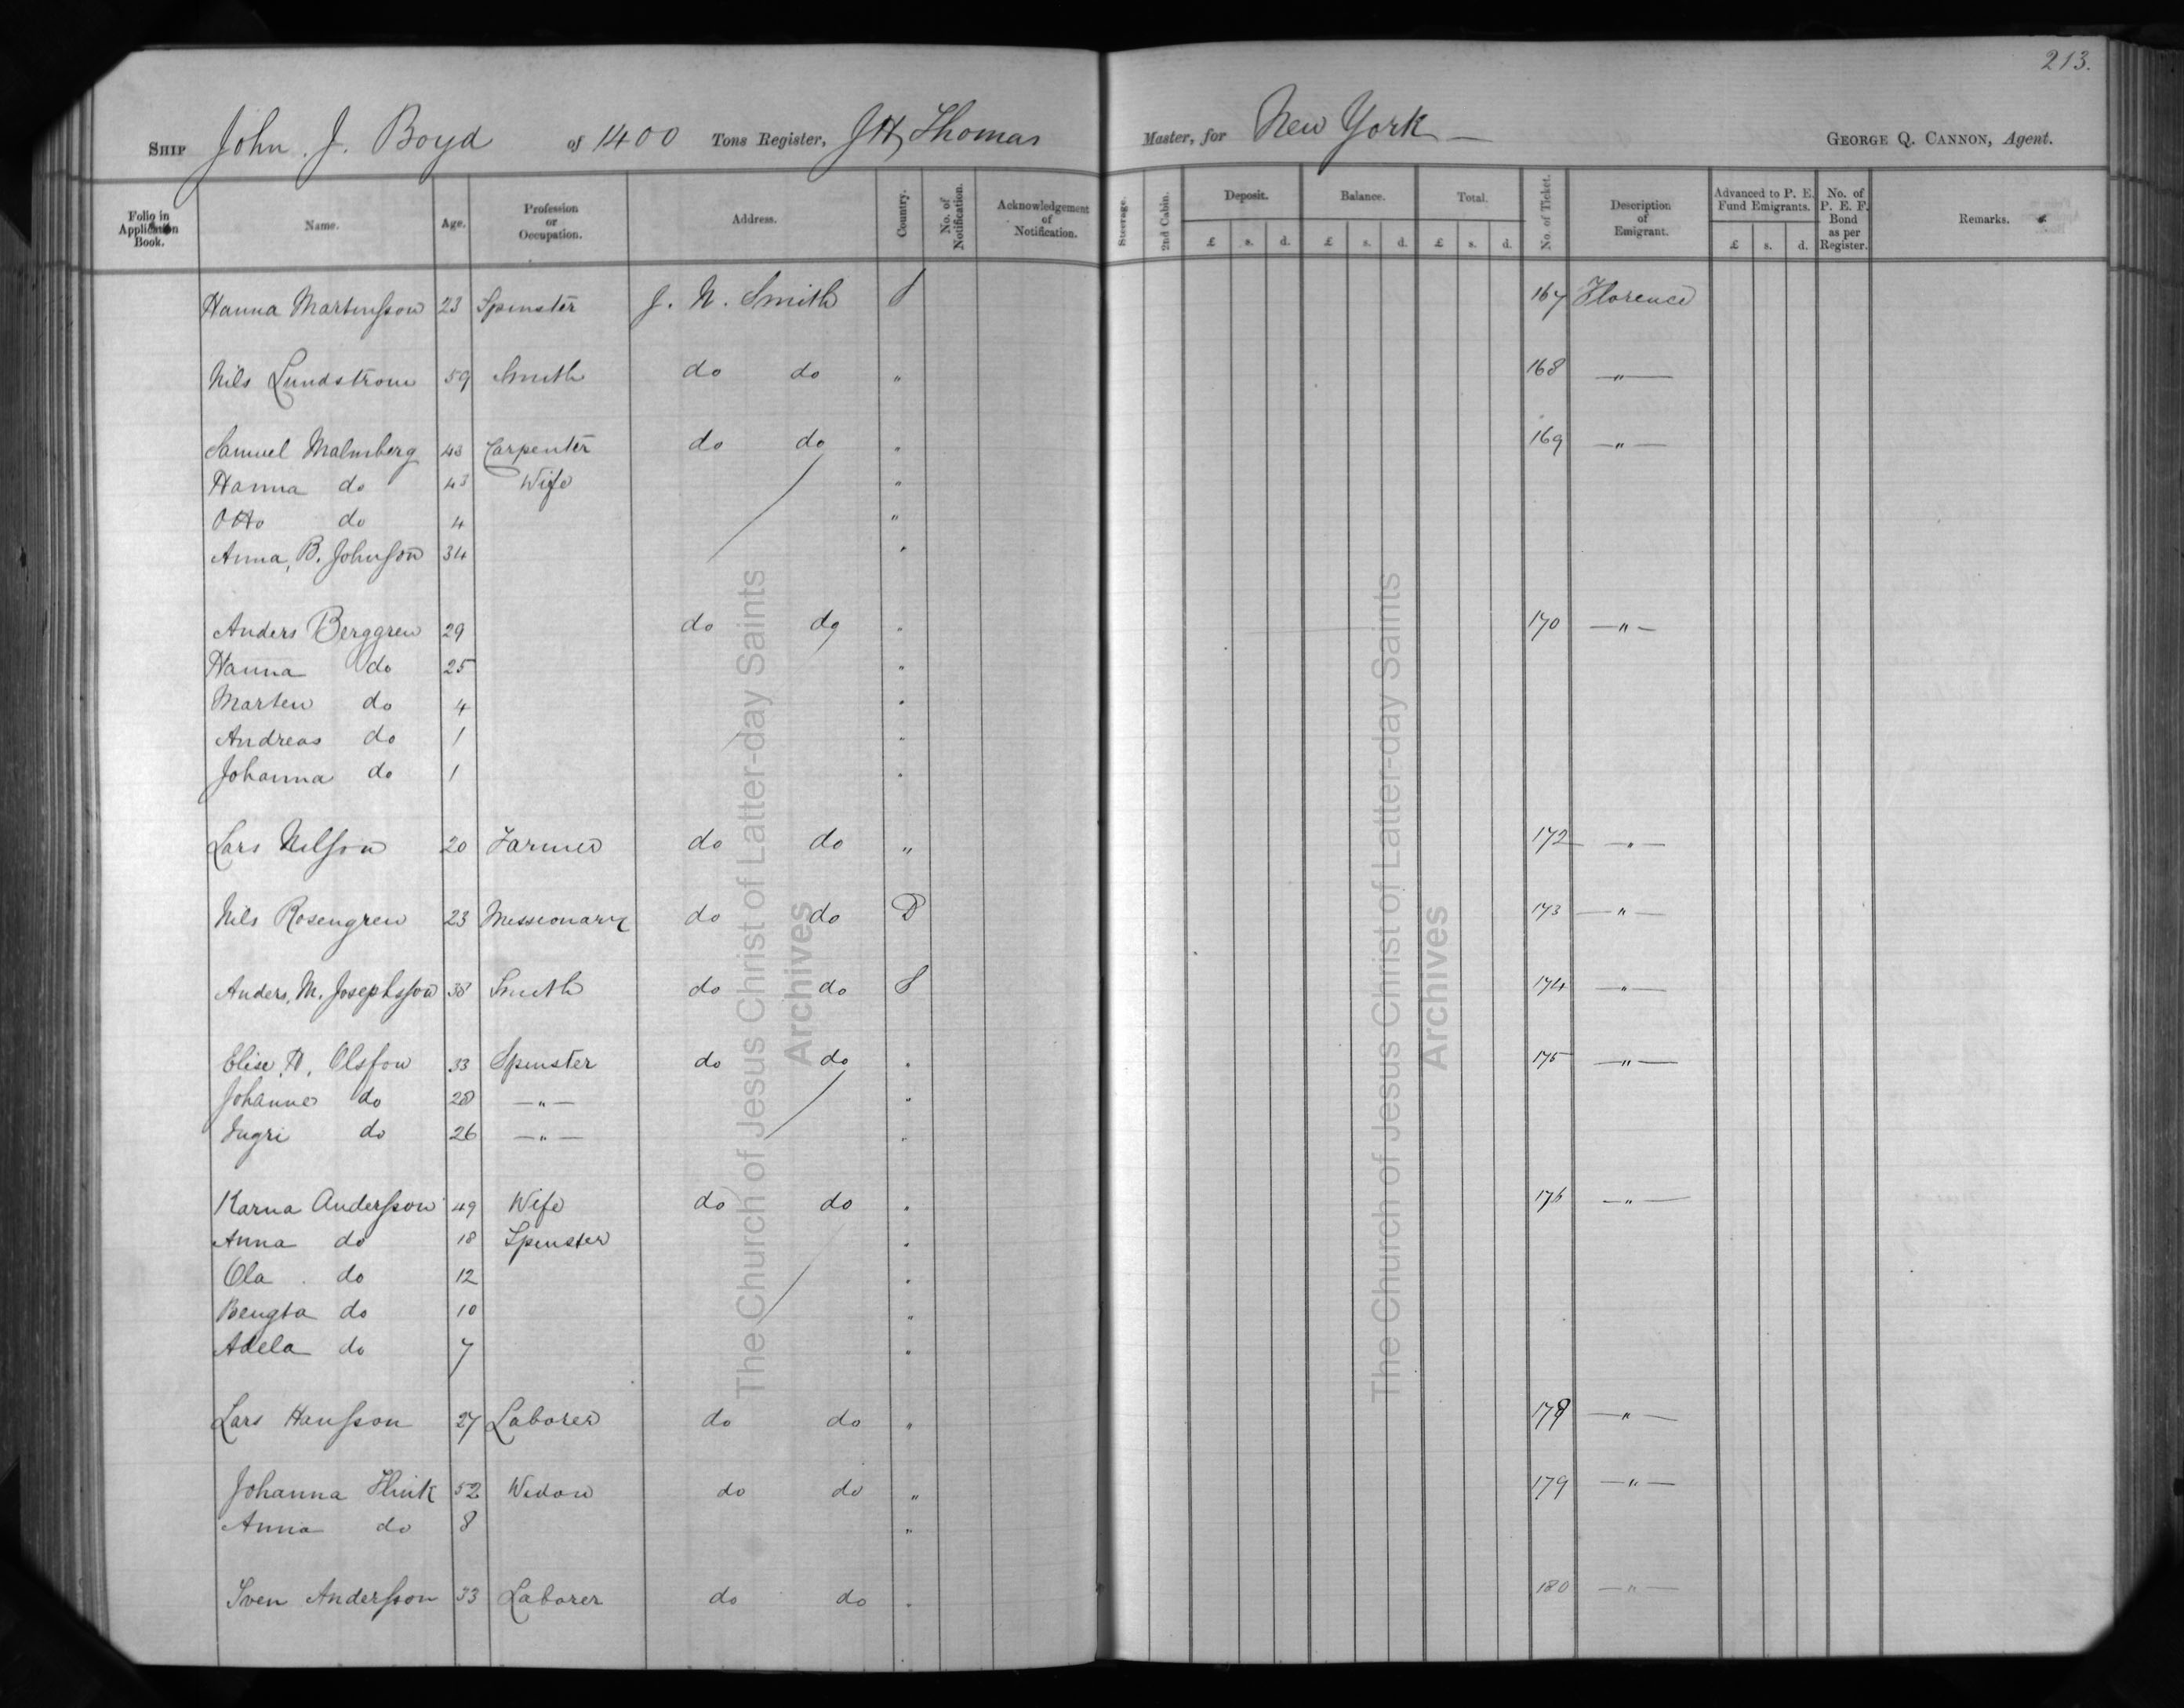 213.
SHIP John. J. Boyd of 1400 Tons Register, J H, Thomas Master, for New York — GEORGE Q. CANNON, Agent.
Folio in Application Book. Name. Age. Profession or Occupation. Address. Country. No. of Notification. Acknowledgement of Notification. Steerage. 2nd Cabin. Deposit. £ s. d. Balance. £ s. d. Total. £ s. d. No. of Ticket. Description of Emigrant. Advanced to P. E. Fund Emigrants. £ s. d. No. of P. E. F. Bond as per Register. Remarks.
Hanna Martinsson 23 Spinster J. N. Smith S 167 Florence
Nils Lundstrom 59 Smith do do " 168 —"—
Samuel Malmberg 43 Carpenter do do " 169 —"—
Hanna do 43 Wife "
Otto do 4 "
Anna, B. Johnson 34 "
Anders Berggren 29 do do " 170 —"—
Hanna do 25 "
Marten do 4 "
Andreas do 1 "
Johanna do 1 "
Lars Nilsson 20 Farmer do do " 172 —"—
Nils Rosengren 23 Missionary do do D 173 —"—
Anders, M. Josephsson 38 Smith do do S 174 —"—
Elise, H, Olsson 33 Spinster do do " 175 —"—
Johanne do 28 —"— "
Ingri do 26 —"— "
Karna Andersson 49 Wife do do " 176 —"—
Anna do 18 Spinster "
Ola do 12 "
Bengta do 10 "
Adela do 7 "
Lars Hansson 27 Laborer do do " 178 —"—
Johanna Flink 52 Widow do do " 179 —"—
Anna do 8 "
Sven Andersson 33 Laborer do do " 180 —"—
The Church of Jesus Christ of Latter-day Saints
Archives
The Church of Jesus Christ of Latter-day Saints
Archives